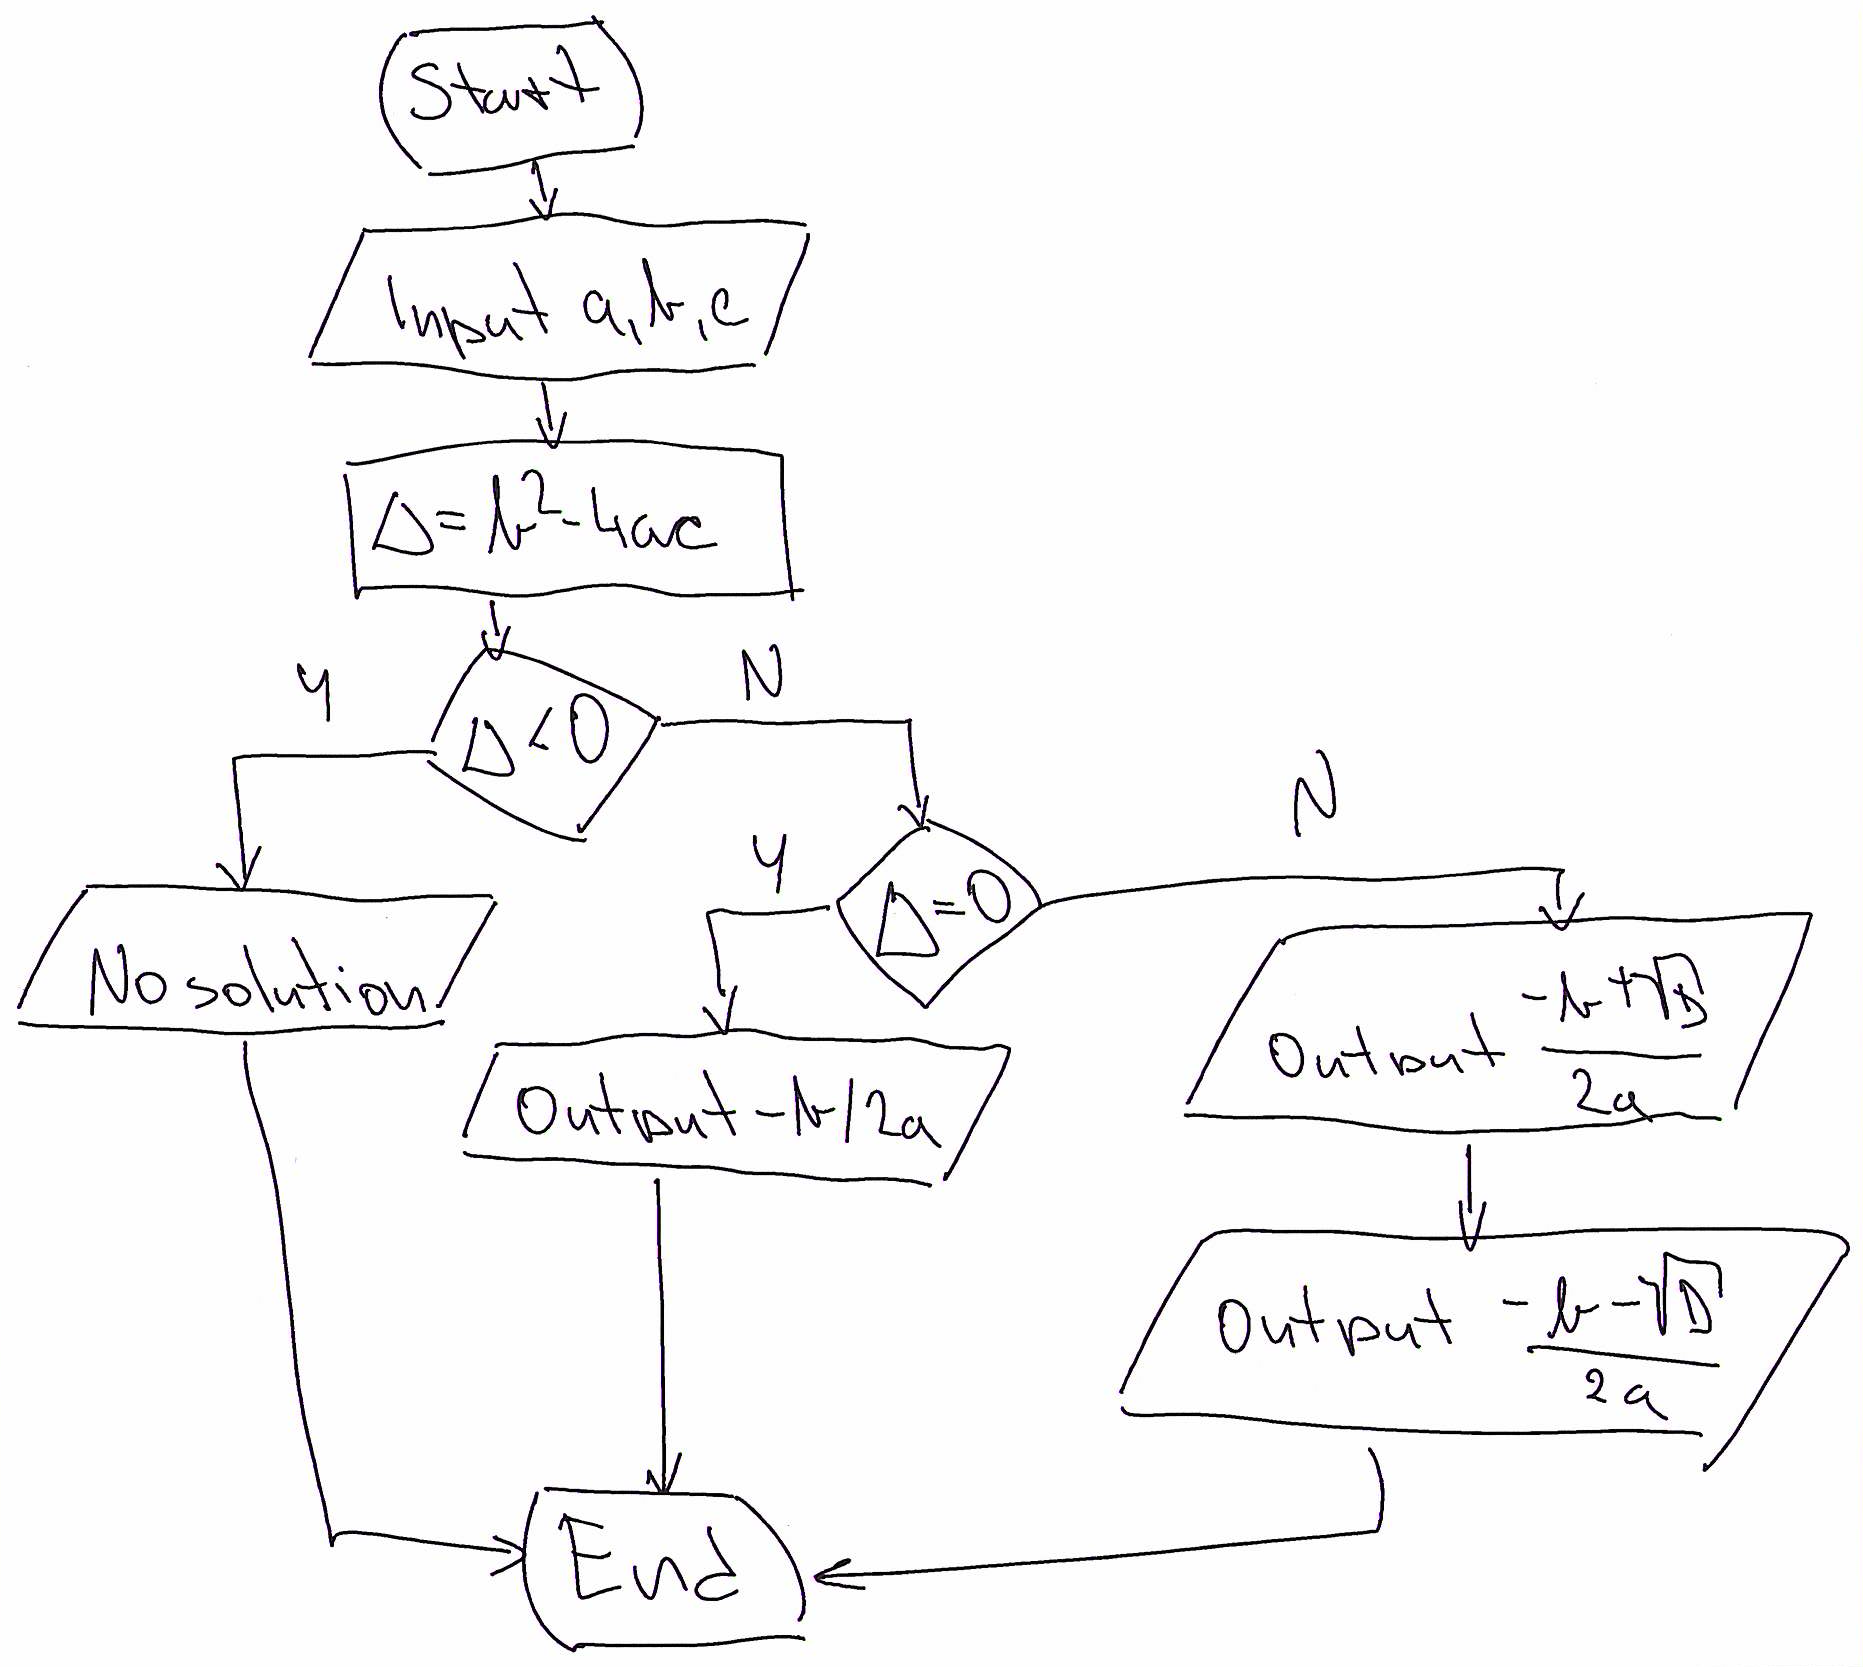 Start
Input a,b,c
Δ=b²-4ac
Y
N
Δ<0
N
Y
Δ=0
No solution
Output -b+√Δ
2a
Output -b/2a
Output -b-√Δ
2a
End